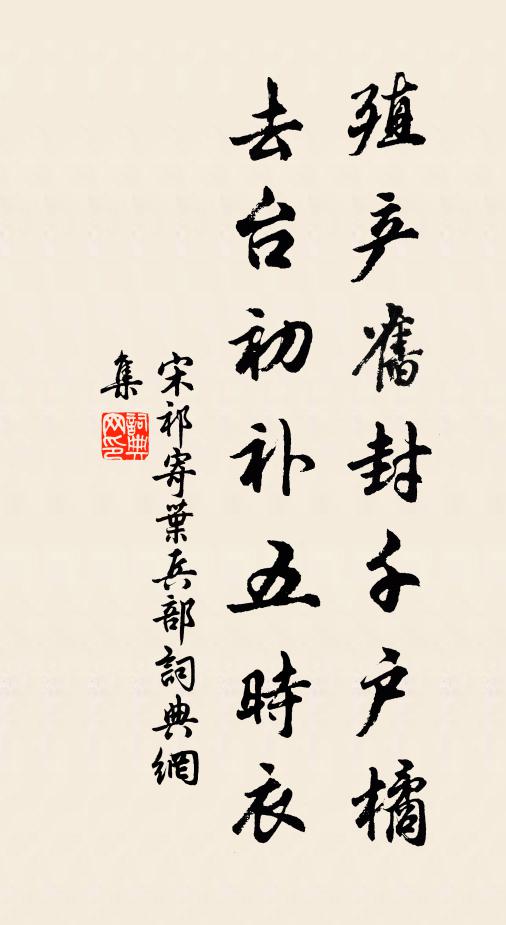 殖产舊封千户橘
去台初补五時衣
宋祁寄葉兵部詞典網
集
詞典网印